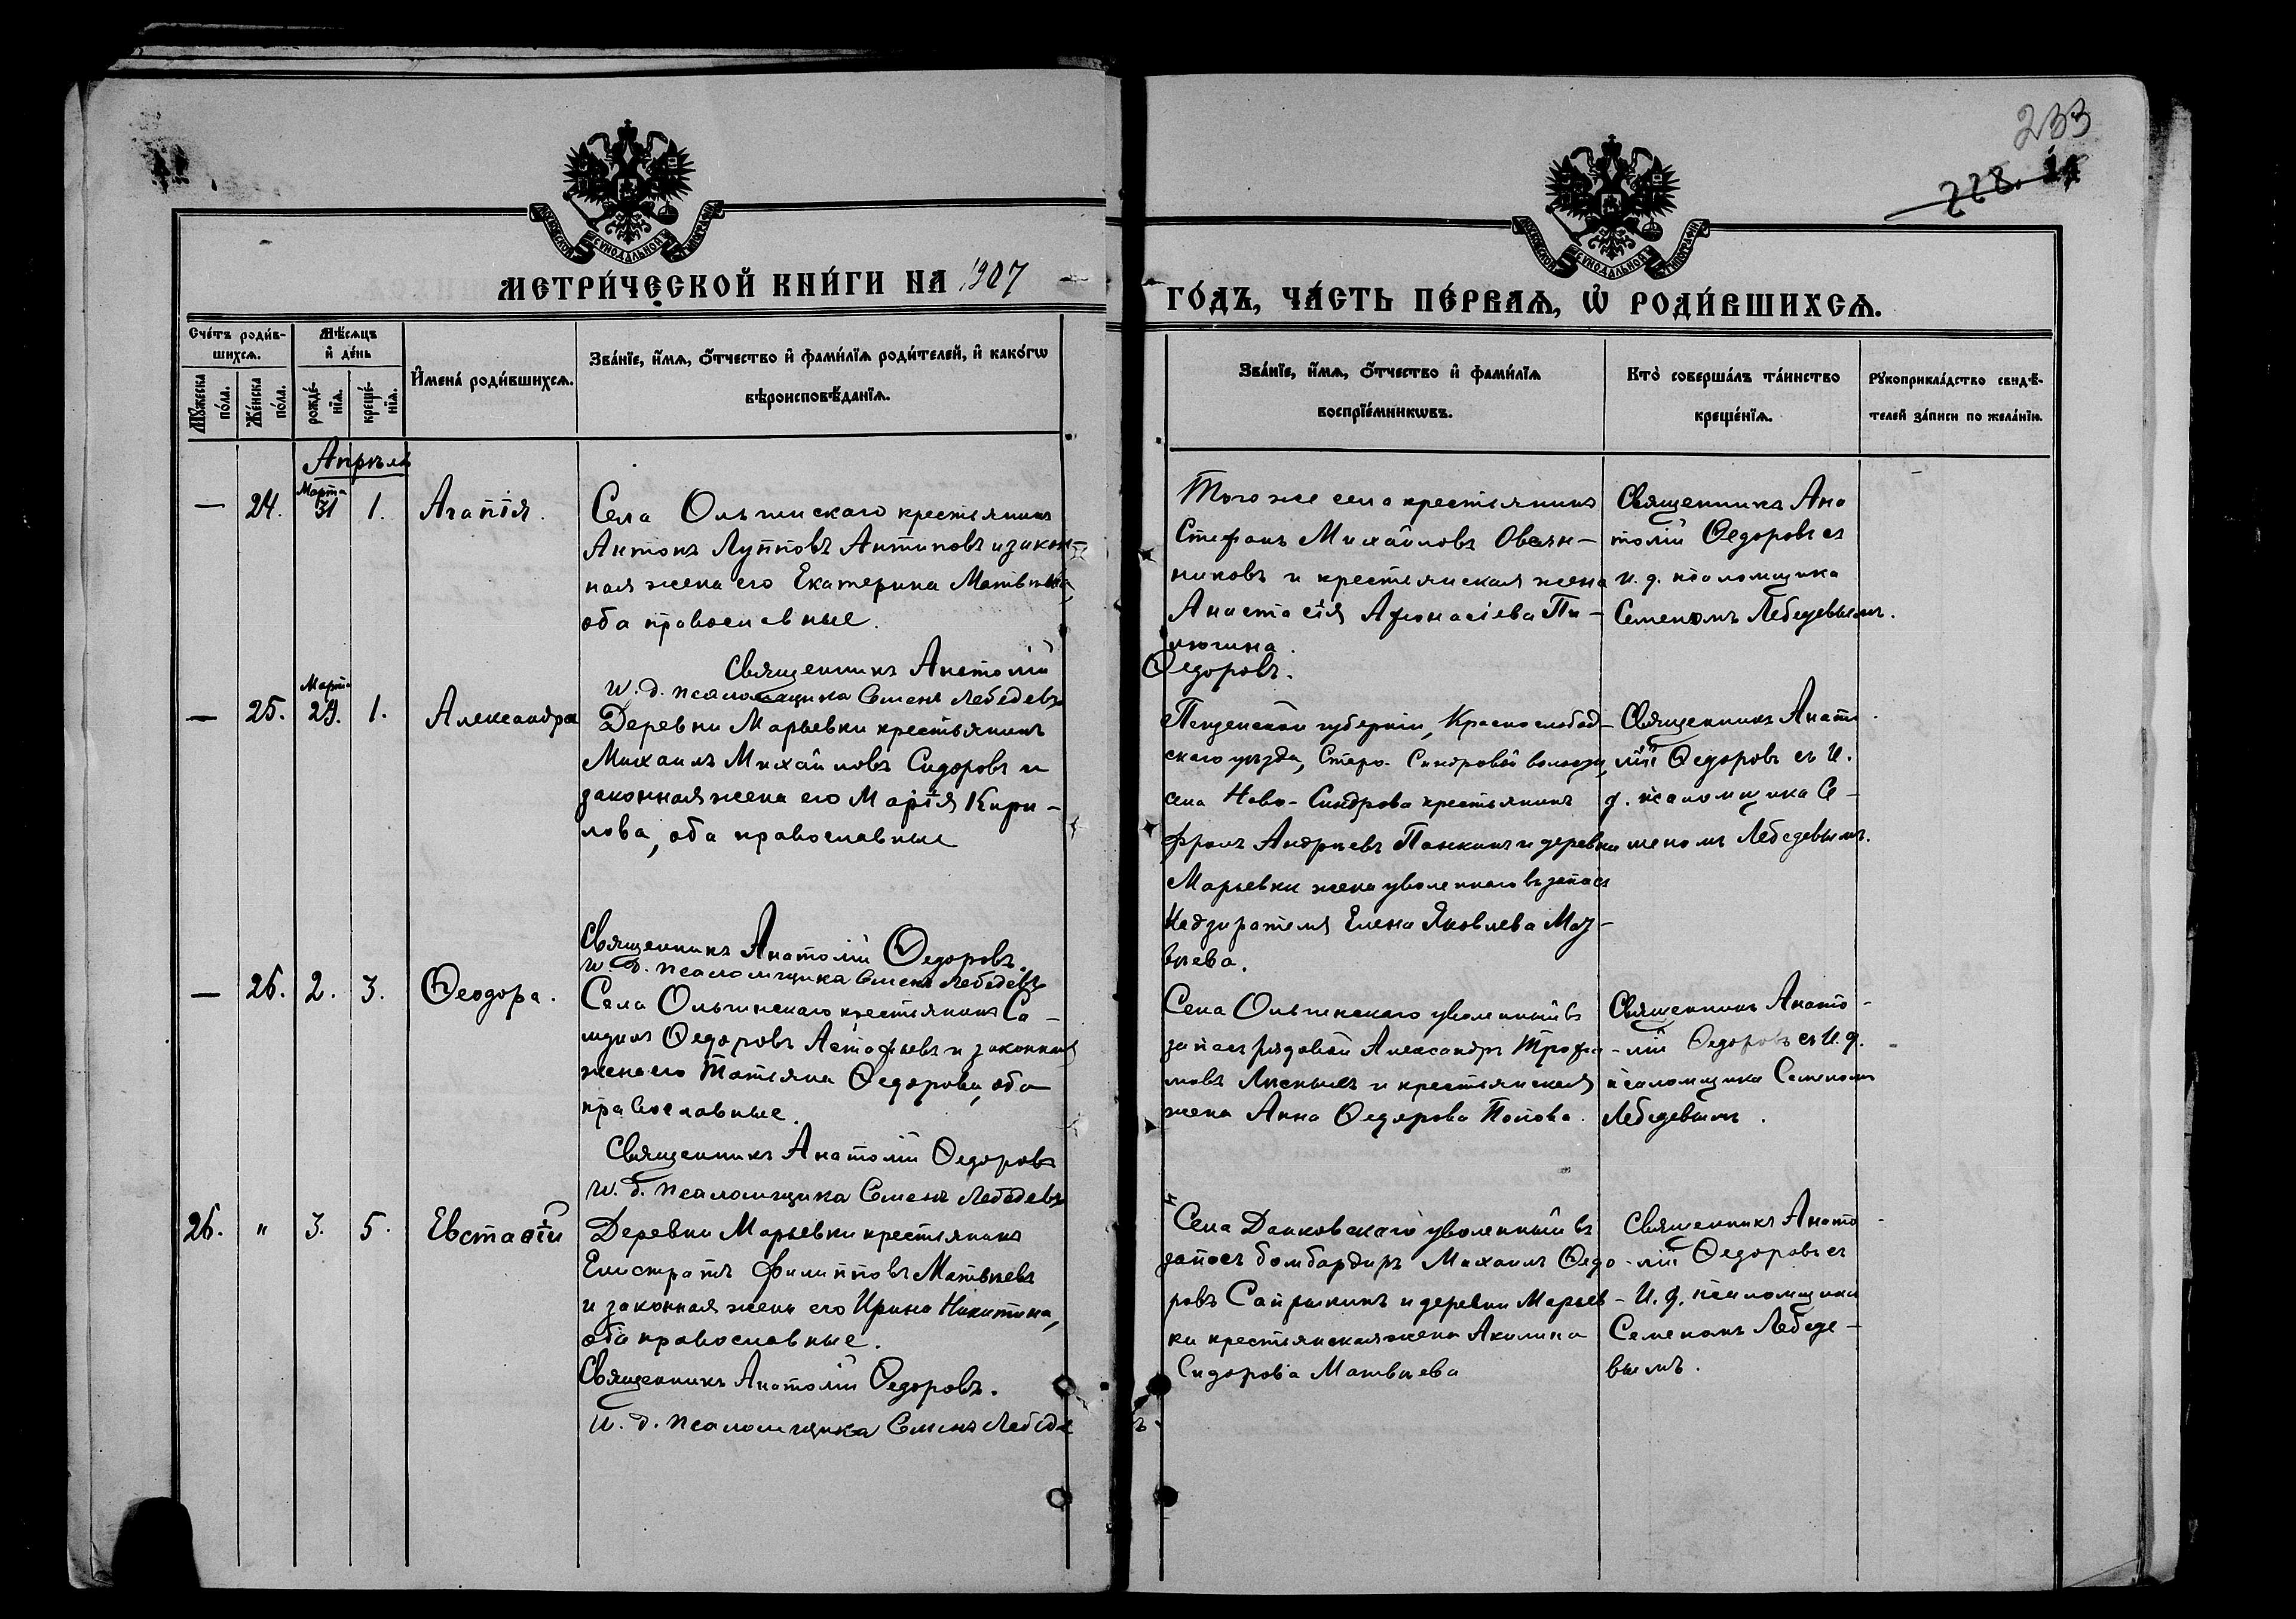 233
228.
МОСКОВСКОЙ СѴНОДАЛЬНОЙ ТИПОГРАФІИ
МОСКОВСКОЙ СѴНОДАЛЬНОЙ ТИПОГРАФІИ
МЕТРИ́ЧЕСКОЙ КНИ́ГИ НА 1907
ГО́ДЪ, ЧА́СТЬ ПЕ́РВАѦ, Ѽ РОДИ́ВШИХСѦ.
Сче́тъ роди́в-
шихсѧ.
Мѣ́сѧцъ
и҆ де́нь
Мꙋ́жеска по́ла.
Же́нска по́ла.
рожде́-нїѧ.
креще́-нїѧ.
И҆мена̀ роди́вшихсѧ.
Зва́нїе, и҆́мѧ, ѻ҆́тчество и҆ фами́лїѧ роди́телей, и҆ како́гѡ
вѣроисповѣ́данїѧ.
Зва́нїе, и҆́мѧ, ѻ҆́тчество и҆ фами́лїѧ
воспрїе́мникѡвъ.
Кто̀ соверша́лъ та́инство
креще́нїѧ.
Рꙋкоприкла́дство свидѣ́-
телей за́писи по жела́нїю.
Апрѣль
— 24. Марта 31 1. Агапія.
Села Ольгинскаго крестьянинъ
Антонъ Лупповъ Антиповъ и закон-
ная жена его Екатерина Матвѣева
оба православные.
Священникъ Анатолій
Ѳедоровъ.
И. д. псаломщика Семенъ Лебедевъ
Того же села крестьянинъ
Стефанъ Михайловъ Овчин-
никовъ и крестьянская жена
Анастасія Афонасіева Пи-
люгина.
Священникъ Ана
толій Ѳедоровъ съ
и. д. псаломщика
Семеномъ Лебедевымъ.
— 25. Марта 29. 1. Александра
Деревни Марьевки крестьянинъ
Михаилъ Михайловъ Сидоровъ и
законная жена его Марія Кири-
лова, оба православные
Священникъ Анатолій Ѳедоровъ.
И. д. псаломщика Семенъ Лебедевъ
Пензенской губерніи, Краснослобод-
скаго уѣзда, Старо-Синдровой волости,
села Ново-Синдрова крестьянинъ
Фролъ Андреевъ Панкинъ и деревни
Марьевки жена уволеннаго въ запасъ
надзирателя Елена Яковлева Мат-
вѣева.
Священникъ Анато
лій Ѳедоровъ съ И.
д. псаломщика Се-
меномъ Лебедевымъ.
— 26. 2. 3. Ѳеодора.
Села Ольгинскаго крестьянинъ Са-
муилъ Ѳедоровъ Астафьевъ и законная
жена его Татьяна Ѳедорова, оба
православные.
Священникъ Анатолій Ѳедоровъ
И. д. псаломщика Семенъ Лебедевъ
Села Ольгинскаго уволенный въ
запасъ рядовой Александръ Трофи-
мовъ и крестьянская
жена Анна Ѳедорова Попова.
Священникъ Анато-
лій Ѳедоровъ съ И. д.
псаломщика Семеномъ
Лебедевымъ.
26. " 3. 5. Евстафій
Деревни Марьевки крестьянинъ
Елистратъ Филипповъ Матвѣевъ
и законная жена его Ирина Никитина,
оба православные.
Священникъ Анатолій Ѳедоровъ.
И. д. псаломщика Семенъ Лебеде въ.
Села Данковскаго уволенный въ
запасъ бомбардиръ Михаилъ Ѳедо-
ровъ Сапрыкинъ и деревни Марьев-
ки крестьянская жена Акилина
Сидорова Матвѣева
Священникъ Анато-
лій Ѳедоровъ съ
И. д. псаломщика
Семеномъ Лебеде-
вымъ.